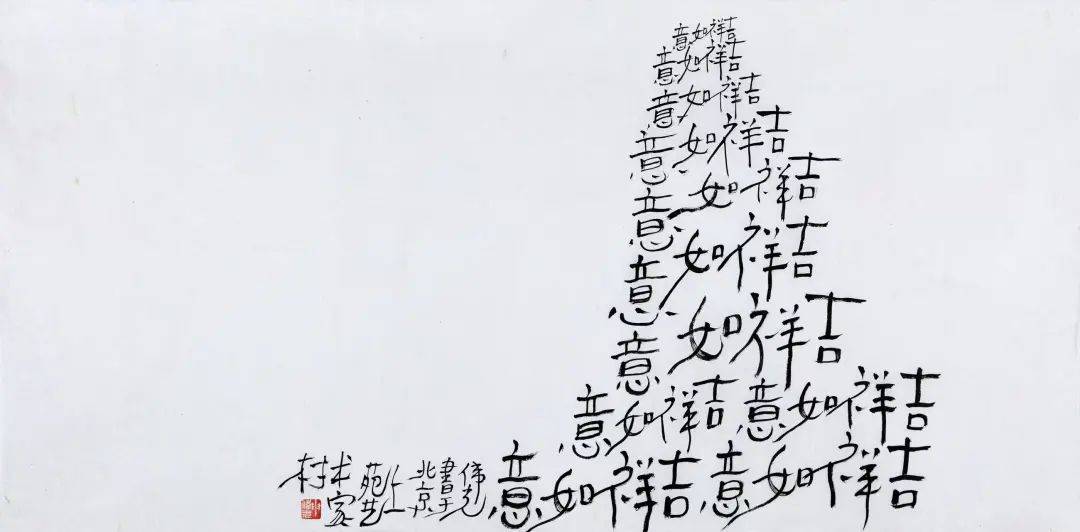 吉祥如意
吉祥如意
吉祥如意
吉祥如意
吉祥如意
吉祥如意
吉祥如意
吉祥如意吉祥如意
吉祥如意吉祥如意
書于
北京
上
苑艺
术家
村